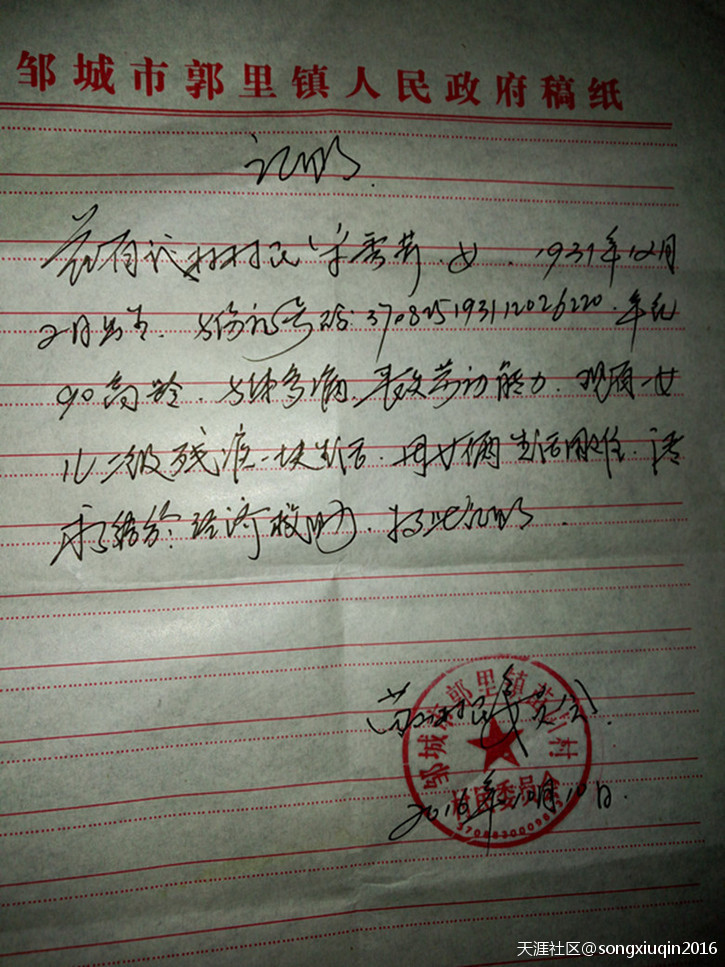 邹城市郭里镇人民政府稿纸
证明.
兹有我村村民宋秀芹,女,1931年12月
2日出生,身份证号码:370825193112026220.年纪
90高龄,身体多病,丧失劳动能力.现有一女
儿二级残疾一块生活.母女俩生活困难.请
求给于经济救助.特此证明.
村民委员会
邹城市郭里镇 村
村民委员会
2016年 月10日.
天涯社区@songxiuqin2016